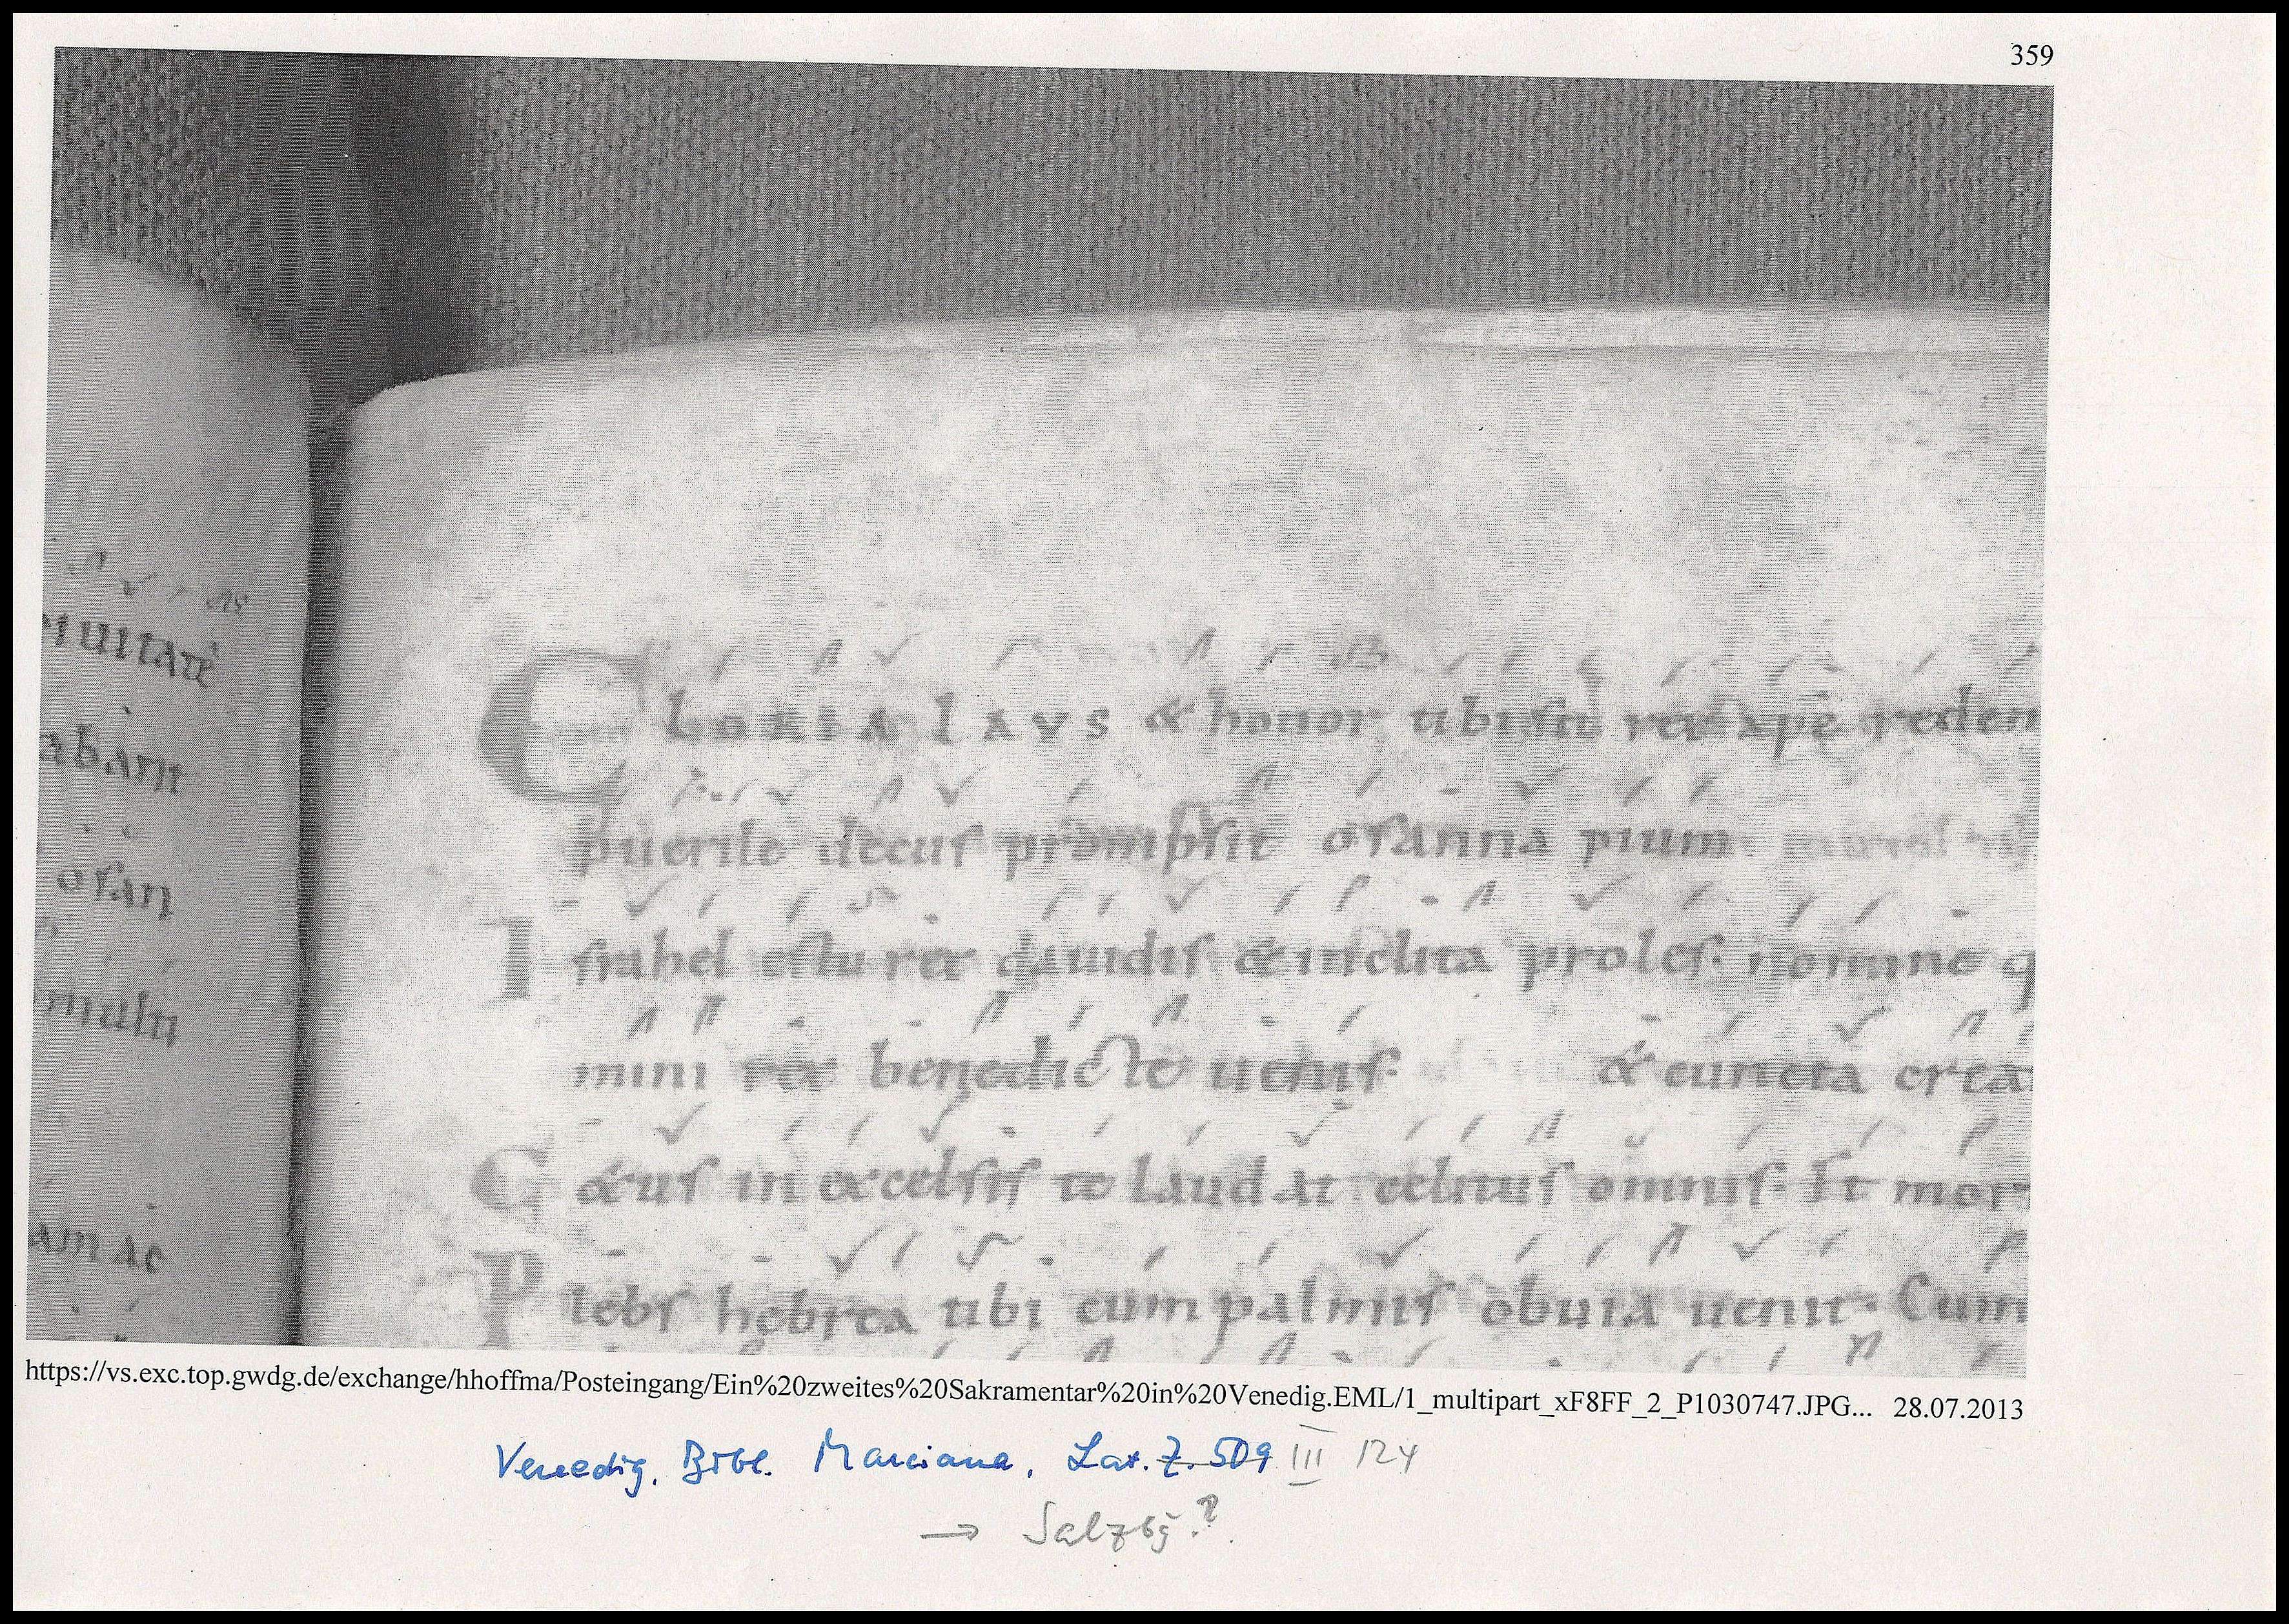 359
iuitatē
abant
osan
multi
am ac
GLORIA LAVS & honor tibi sit rex xpē redem
puerile decus prompsit osanna pium
Israhel es tu rex dauidis & inclita proles. nomine q
mini rex benedicte uenis. & cuncta crea
C&us in excelsis te laudat celitus omnis. Et mor
Plebs hebrea tibi cum palmis obuia uenit. Cum
https://vs.exc.top.gwdg.de/exchange/hhoffma/Posteingang/Ein%20zweites%20Sakramentar%20in%20Venedig.EML/1_multipart_xF8FF_2_P1030747.JPG... 28.07.2013
Venedig, Bibl. Marciana, Lat. Z. 509 III 124
→ Salzbg.?